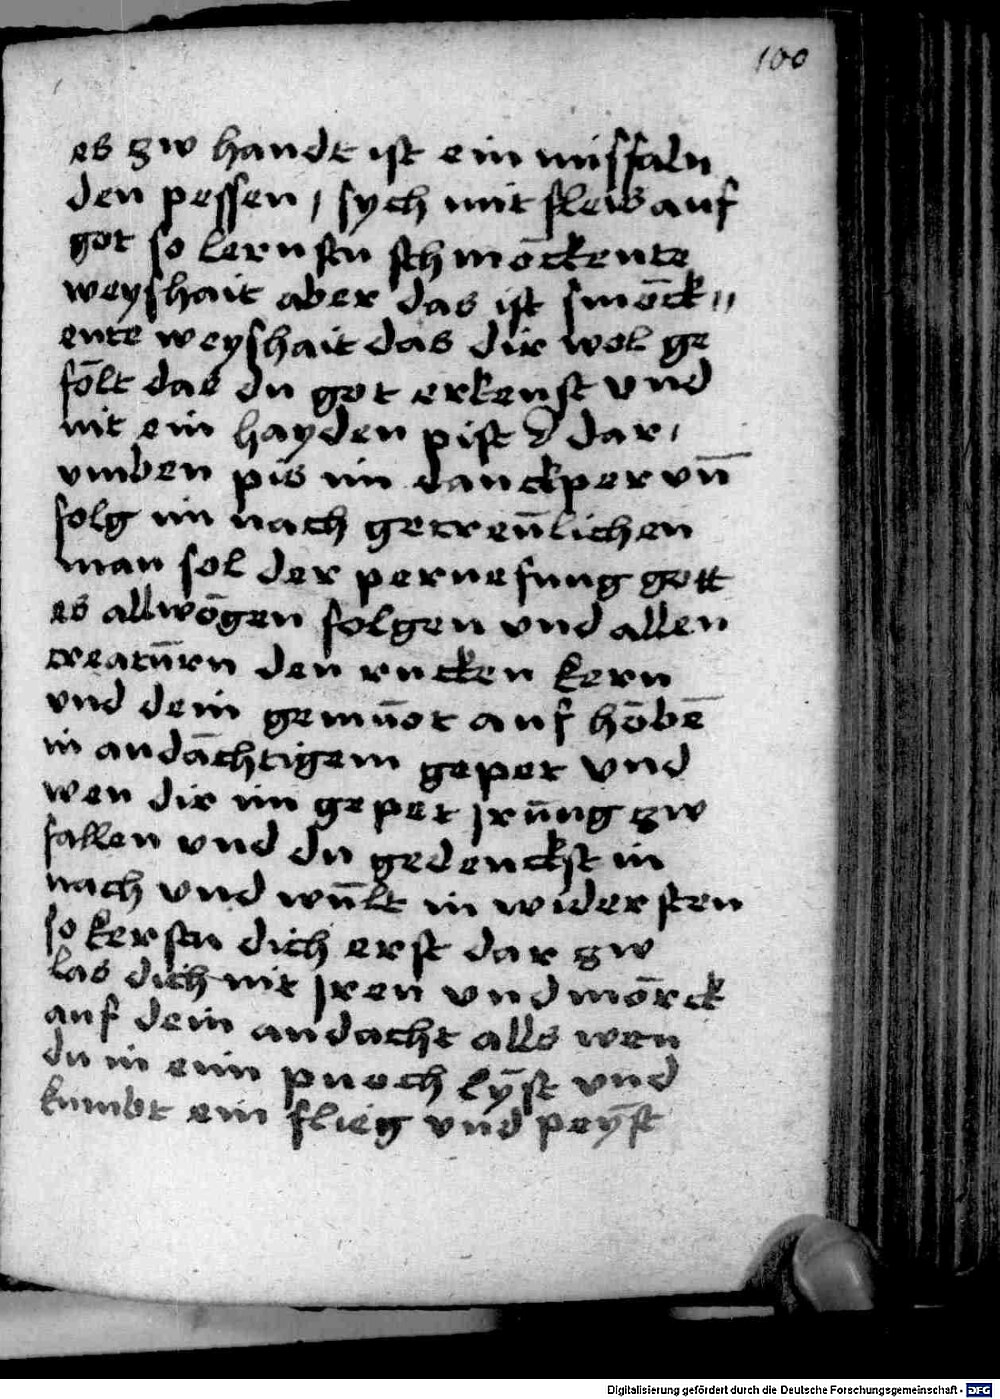 100
es zw handt ist ein missfaln
den pessen / sych mit fleis auf
got so lernstu schmōckente
weyshait aber das ist smōck〃
ente weyshait das dir wol ge
fōlt das du got erkenst vnd
nit ein hayden pist dar /
vmben pis im danckper vn̄
folg im nach getreūlichen
man sol der pernefung gott
es allwōgen folgen vnd allen
creatūrn den rucken kern
vnd dein gemūot auf hōbē
in andāchtigem gepet vnd
wen dir im gepet jrūng zw
fallen vnd du gedenckst in
nach vnd wūlt in widersten
so kerstu dich erst dar zw
las dich nit jren vnd mōrck
auf dein andacht alls wen
du in eim puoch lȳst vnd
kumbt ein flieg vnd peȳst
Digitalisierung gefördert durch die Deutsche Forschungsgemeinschaft - DFG